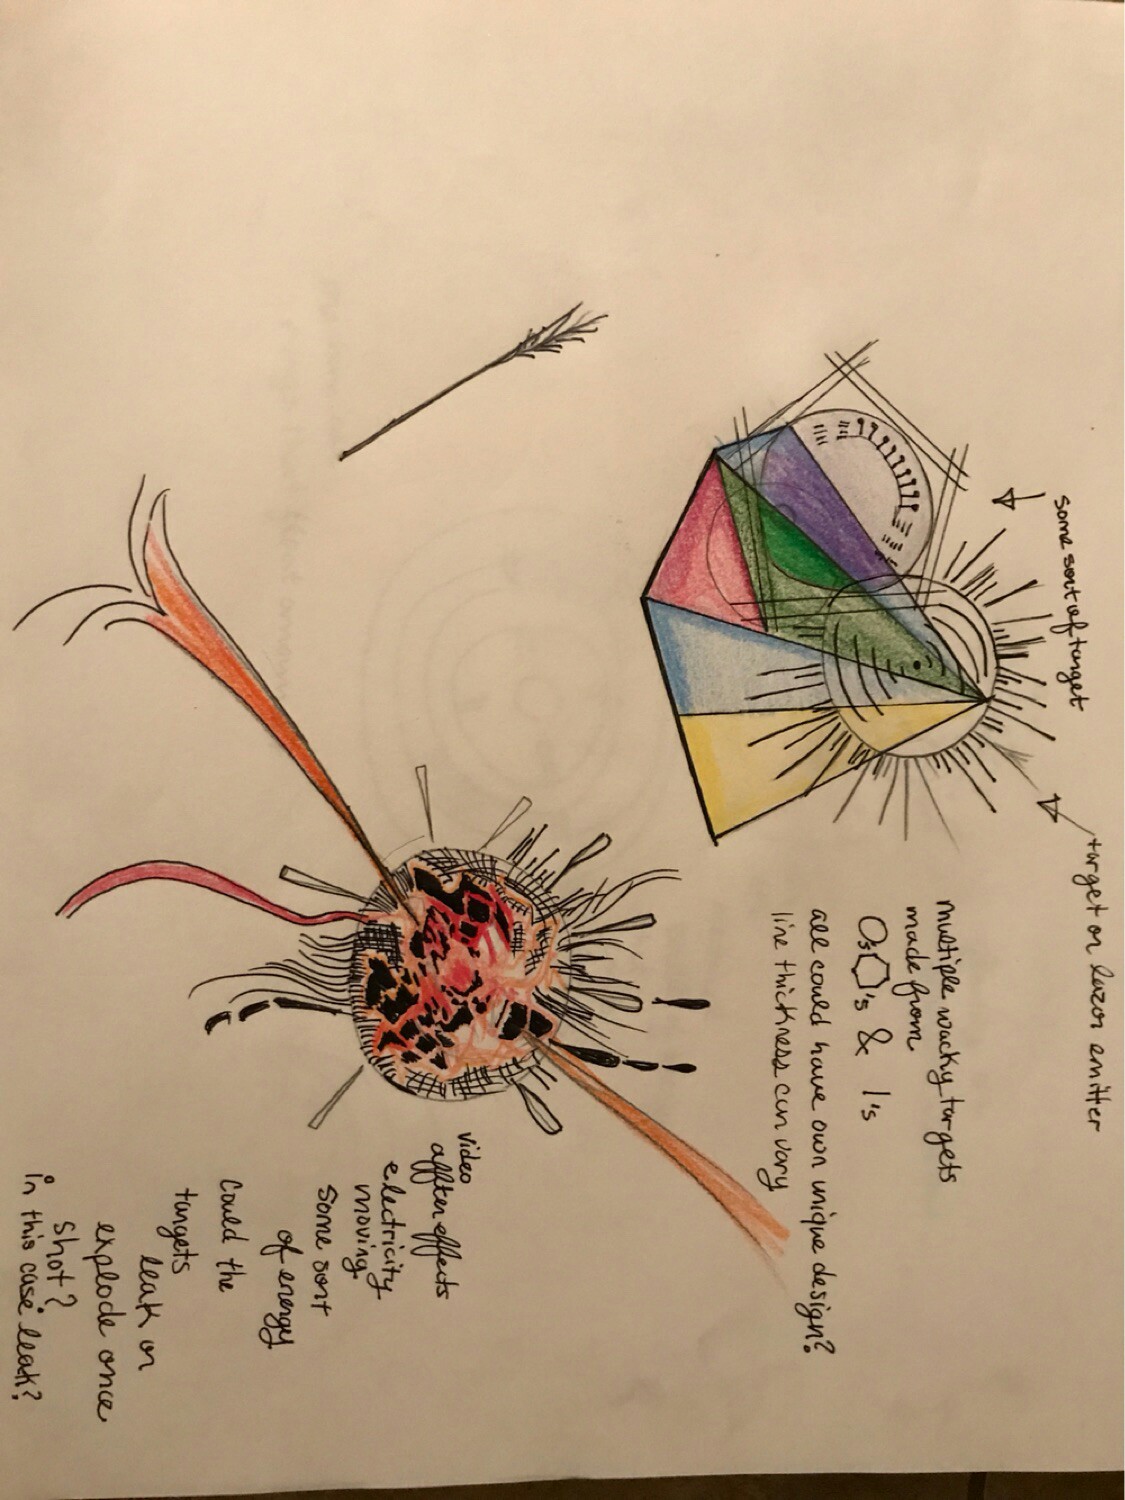 some sort of target
target or lazor emitter
multiple wacky targets
made from
O's ⬡'s & 1's
all could have own unique design?
line thickness can vary
video
affter effects
electricity
moving
Some sort
of energy
Could the
targets
leak or
explode once
shot?
in this case leak?